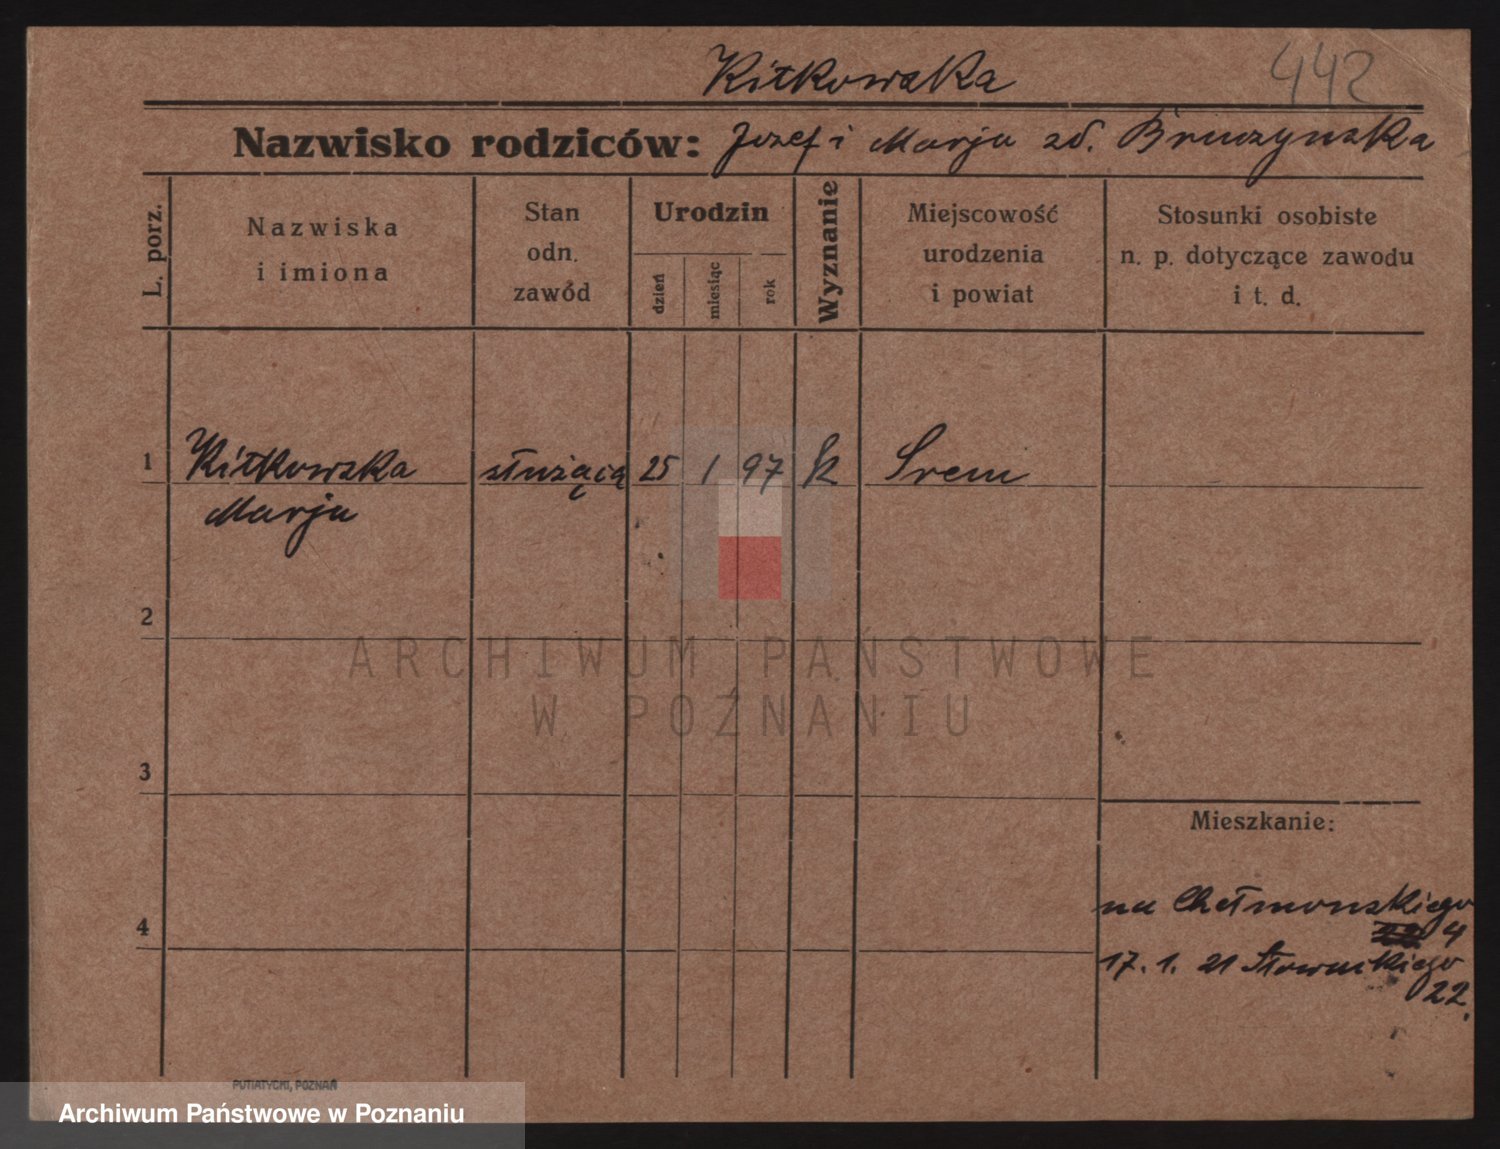 Kitkowska 442
Nazwisko rodziców: Jozef i Marja zd. Bruszynska
L. porz.
Nazwiska
i imiona
Stan
odn.
zawód
Urodzin
dzień
miesiąc
rok
Wyznanie
Miejscowość
urodzenia
i powiat
Stosunki osobiste
n. p. dotyczące zawodu
i t. d.
1 Kitkowska służąca 25 1 97 k Srem
Marja
2
ARCHIWUM PAŃSTWOWE
W POZNANIU
3
Mieszkanie:
4
na Chełmonskiego
4
17. 1. 21 Słowackiego
22.
PUTIATYCKI, POZNAŃ
Archiwum Państwowe w Poznaniu